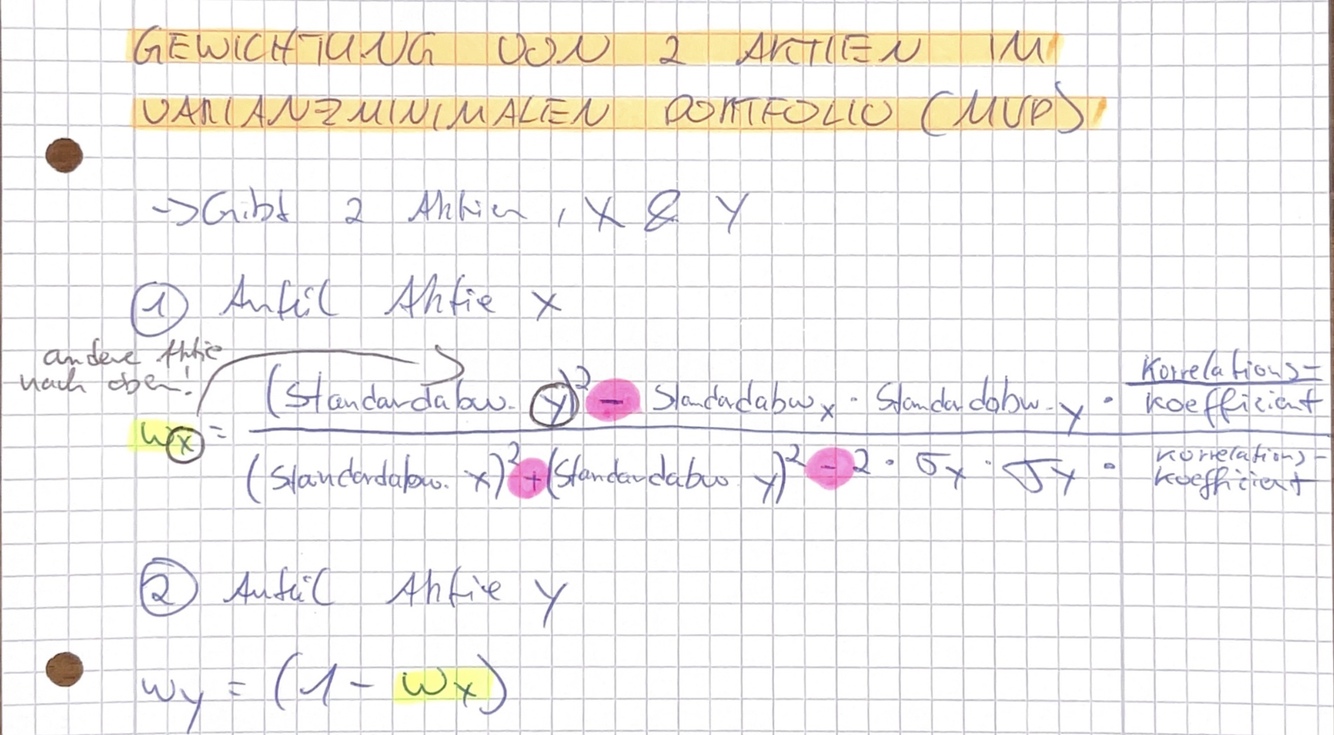 GEWICHTUNG VON 2 AKTIEN IM
VARIANZMINIMALEN PORTFOLIO (MVP)
->Gibt 2 Aktien, X & Y
① Anteil Aktie X
andere Aktie
nach oben!
wx = (Standardabw. y)² - Standardabw x · Standardabw. y · Korrelations=
koeffizient
(Standardabw. x)² + (Standardabw y)² - 2 · σx · σy · Korrelations-
koeffizient
② Anteil Aktie Y
wy = (1 - wx)